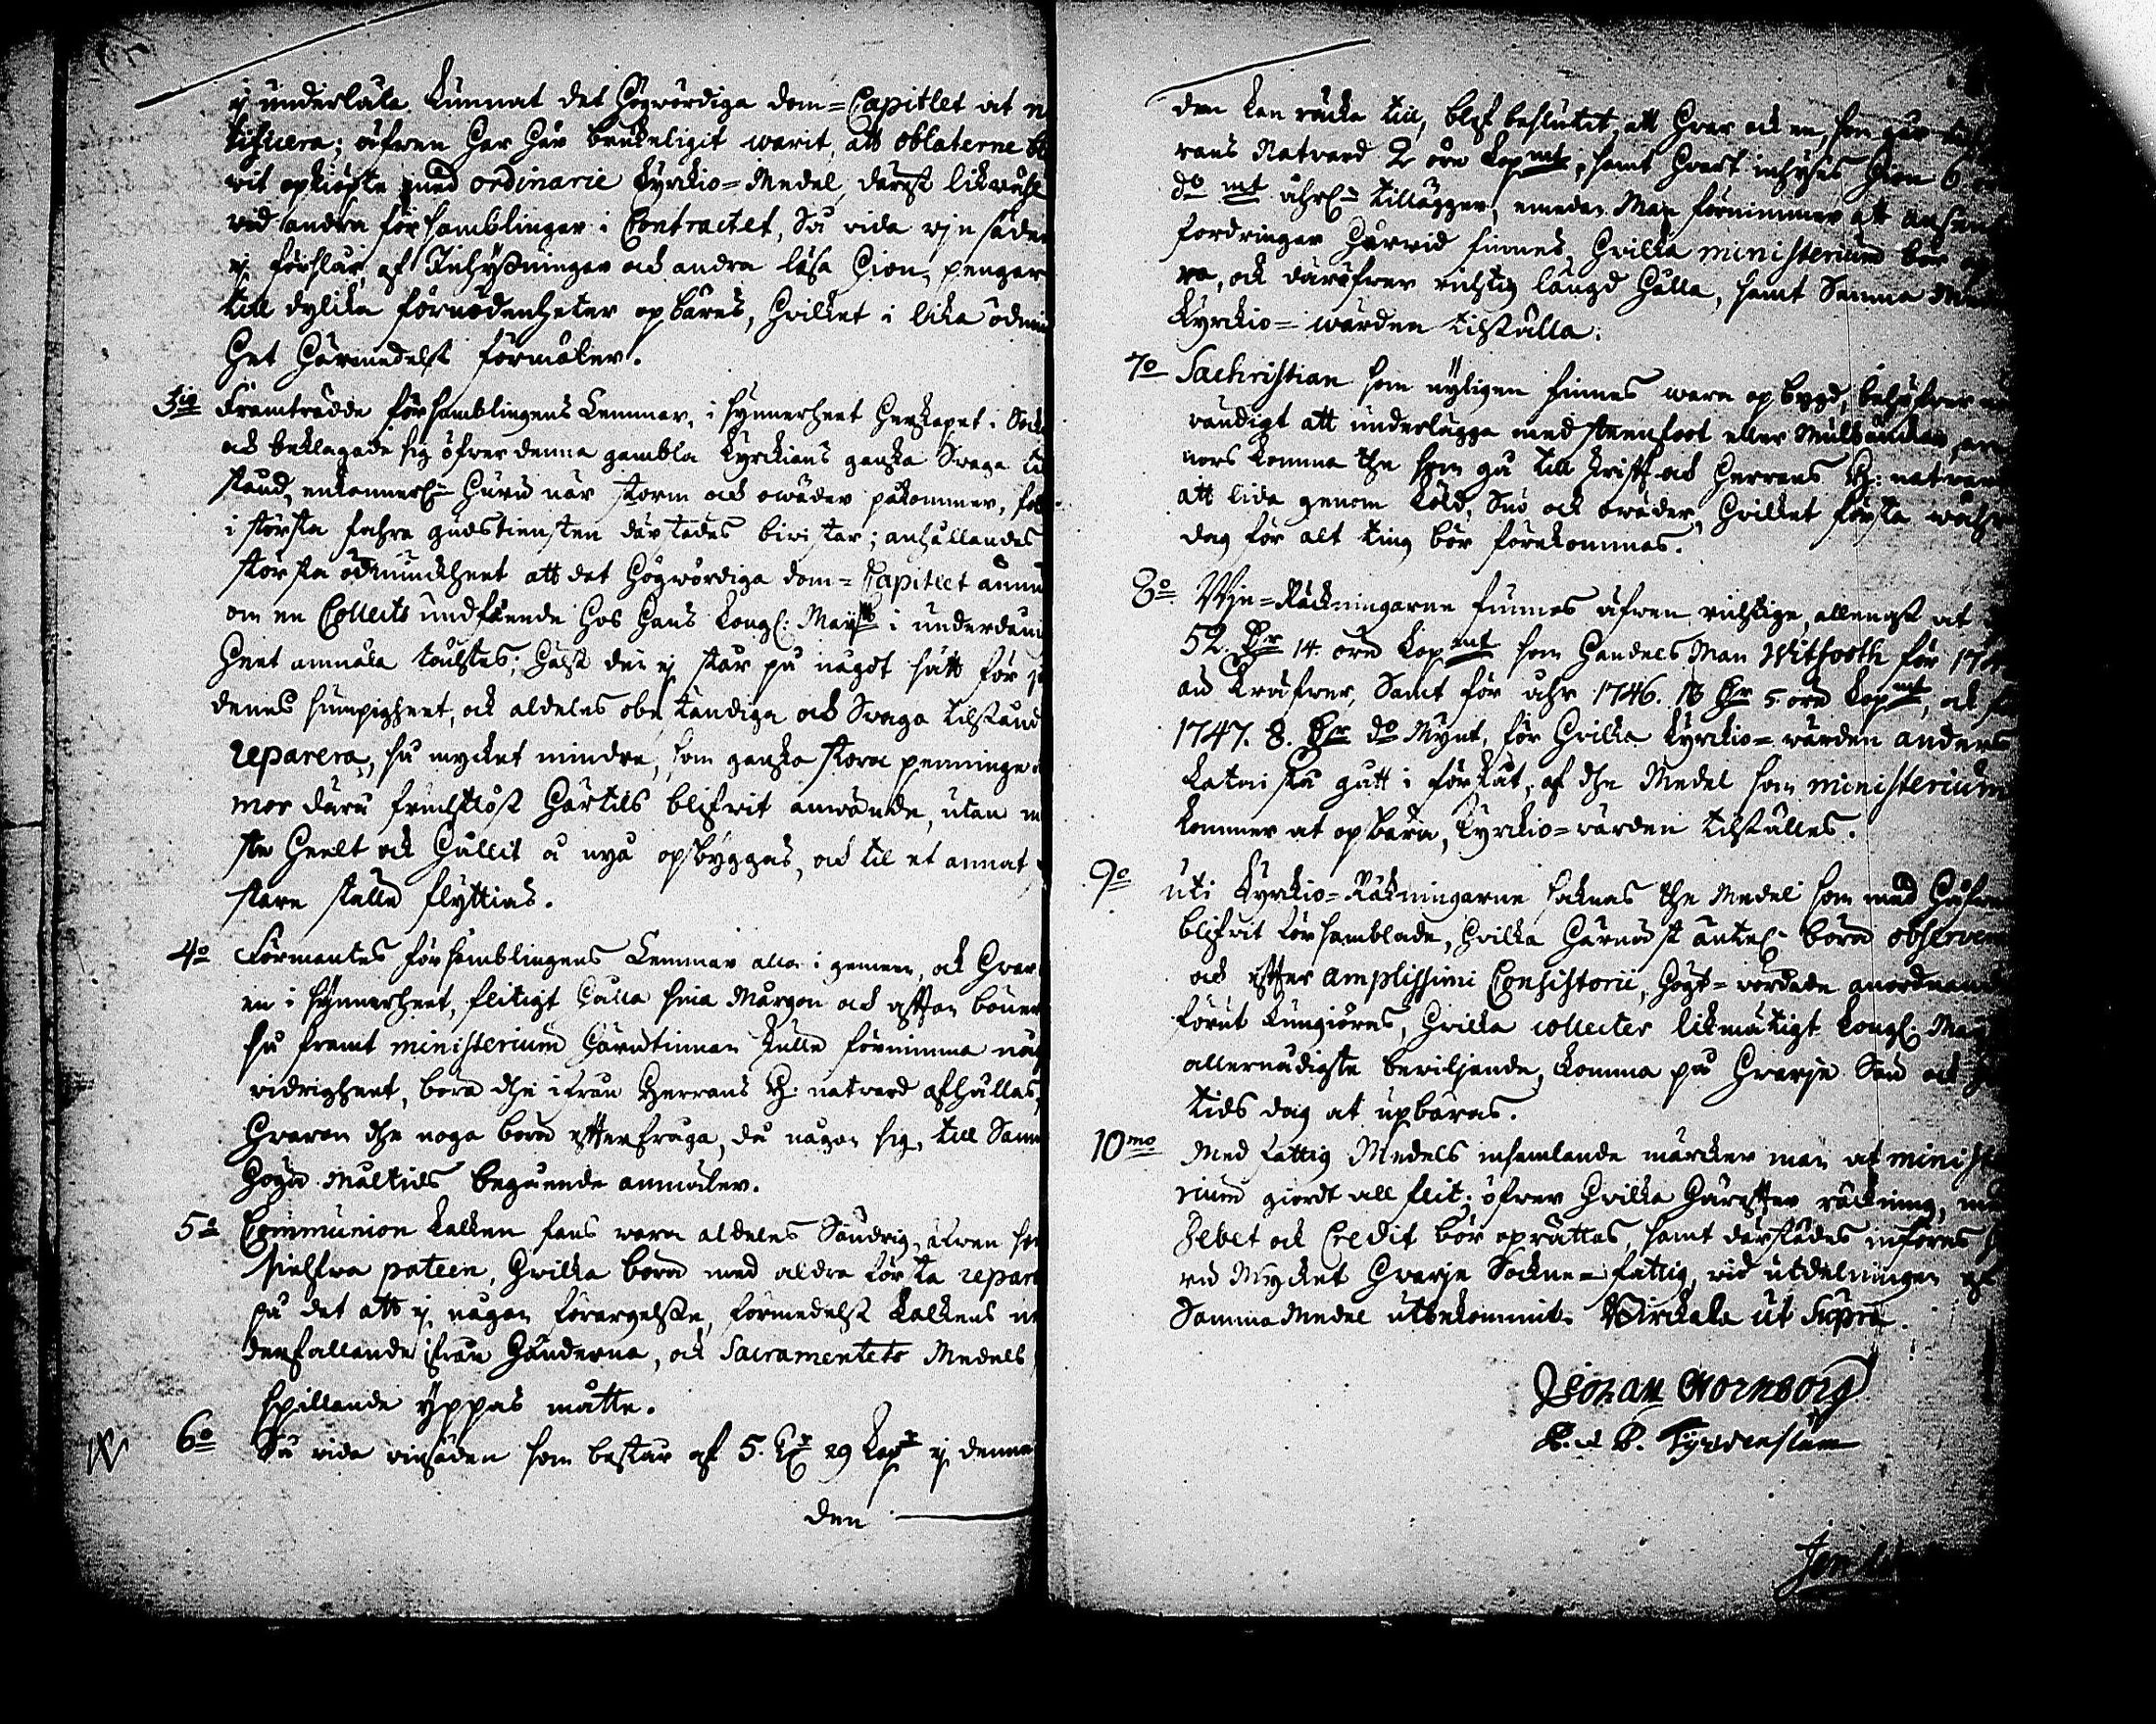 ej underlåta kunnat det Högwördiga Dom=Capitlet at n
tificera; äfwen har här brukeligit warit, att oblaterne bl
vit opkiöpte med ordinarie Kyrckio=Medel, därest likwähl
vid andra församblingar i Contractet, Så vida wjnsäden
ej förslår, af Inhysningar och andra lösa hion, pengar
till dylika förnödenheter opbäres, hvilket i lika ödmiu
het härmedelst förmäles.
3tio Framträdde församblingens Lemmar, i synnerheet herskapet i Sock
och beklagade sig öfwer denna gambla Kyrckians ganska Swaga til
stånd, enkannerl: huru när storm och owäder påkommer, folk
i största fahra gudstiensten därstädes bivistar; anhållandes
största ödmiuckheet att det Högwördiga Dom=Capitlet annu
om en Collects undfående hos Hans Kongl: Maijtt i underdåni
heet anmäla täcktes; hälst den ej står på något sätt för s
denes sumpigheet, och aldeles obeständiga och Swaga tilstånd
reparera, så mycket mindre, som ganska stora penninge s
mor därå fruchtlöst härtils blifwit anwände, utan m
ste heelt och hållit å nyo opbyggas, och til et annat
stare ställe flyttias.
4o Förmantes församblingens Lemmar alla i gemeen, och hvar
en i synnerheet, flitigt hålla sina Morgon och afton böner
så framt ministerium härutinnan skulle förnimma någ
vidrigheet, bora the ifrån Herrans H: natward afhållas,
hvaron the noga böra efterfråga, då någon sig, till Sam
höga Måltids begående anmäler.
5o Communion kalken fans wara aldeles Söndrig, äfwen så
sielfwa pateen, hvilka böra med aldra första repare
på det att ej någon förargelse, förmedelst kalkens ne
derfallande ifrån händerna, och Sacramentets Medels
spillande yppas måtte.
6o Så vida vinsäden som består af 5. 29 Kap ej denna
den
den kan räcka till, blef beslutit, att hvar och en, som går till
rans Natvard 2 öre Kopmt, samt hvart inhyses hion 6 ör
do mt åhrl: tillägger, emedan Man förnimmer att ansen
fordringar härvid finnes, hvilka ministerium bör op
ra, och däröfwer richtig längd hålla, samt Samma Med
Kyrckio=wärden tilställa.
7o Sachristian som nyligen finnes wara opbygd, behöfwer nö
vändigt att underläggas med steenfoot eller Mulbänckar, an
nors komma the som gå till skrift och Herrans H: natward
att lida genom köld, Snö och owäder, hvilket första wåhr
dag för alt ting bör förekommas.
8o Wjn=Räckningarne finnes äfwen richtige, allenast at
52. Dr 14. öre Kopmt som Handels Man Witfooth för 174
än kräfwer, Samt för åhr 1746. 18 Dr 5 öre Kopmt, och för
1747. 8. Dr do Mynt, för hvilka Kyrckio=wärden Anders
gått i förskåt, af the Medel som ministerium
kommer at opbära, Kyrckio=wärden tilställes.
9o Uti Kyrckio=Räkningarne saknas the Medel som med Håfwe
blifwit församblade, hvilka härnäst äntel: böra observe
och efter Amplissimi Consistorii, högt=wördade anordnande
förut kungiöras, hvilka collecter likmätigt Kongl: Maij
allernådigste beviljande, komma på hvarje Sön och hö
tids dag at upbäras.
10mo Med Fattig Medels insamlande märcker man at minist
rium giordt all flit; öfwer hvilka härefter räckning, me
Debet och Credit bör oprättas, samt därstädes införes h
ru Mycket hvarje Sockne=fattig, vid utdelningen af
Samma Medel utbekommit. Wirckala ut Supra.
Johan Hornborg
P. & P. Tyrvensium